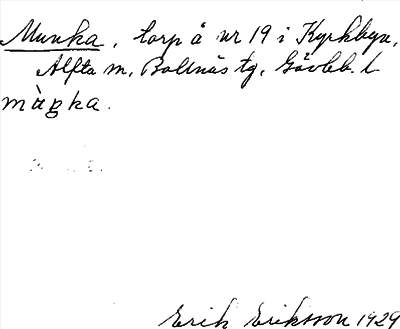 Munka, torp å nr 19 i Kyrkbyn,
Alfta sn, Bollnäs tg, Gävleb. l
màŋka.
Erik Eriksson 1929